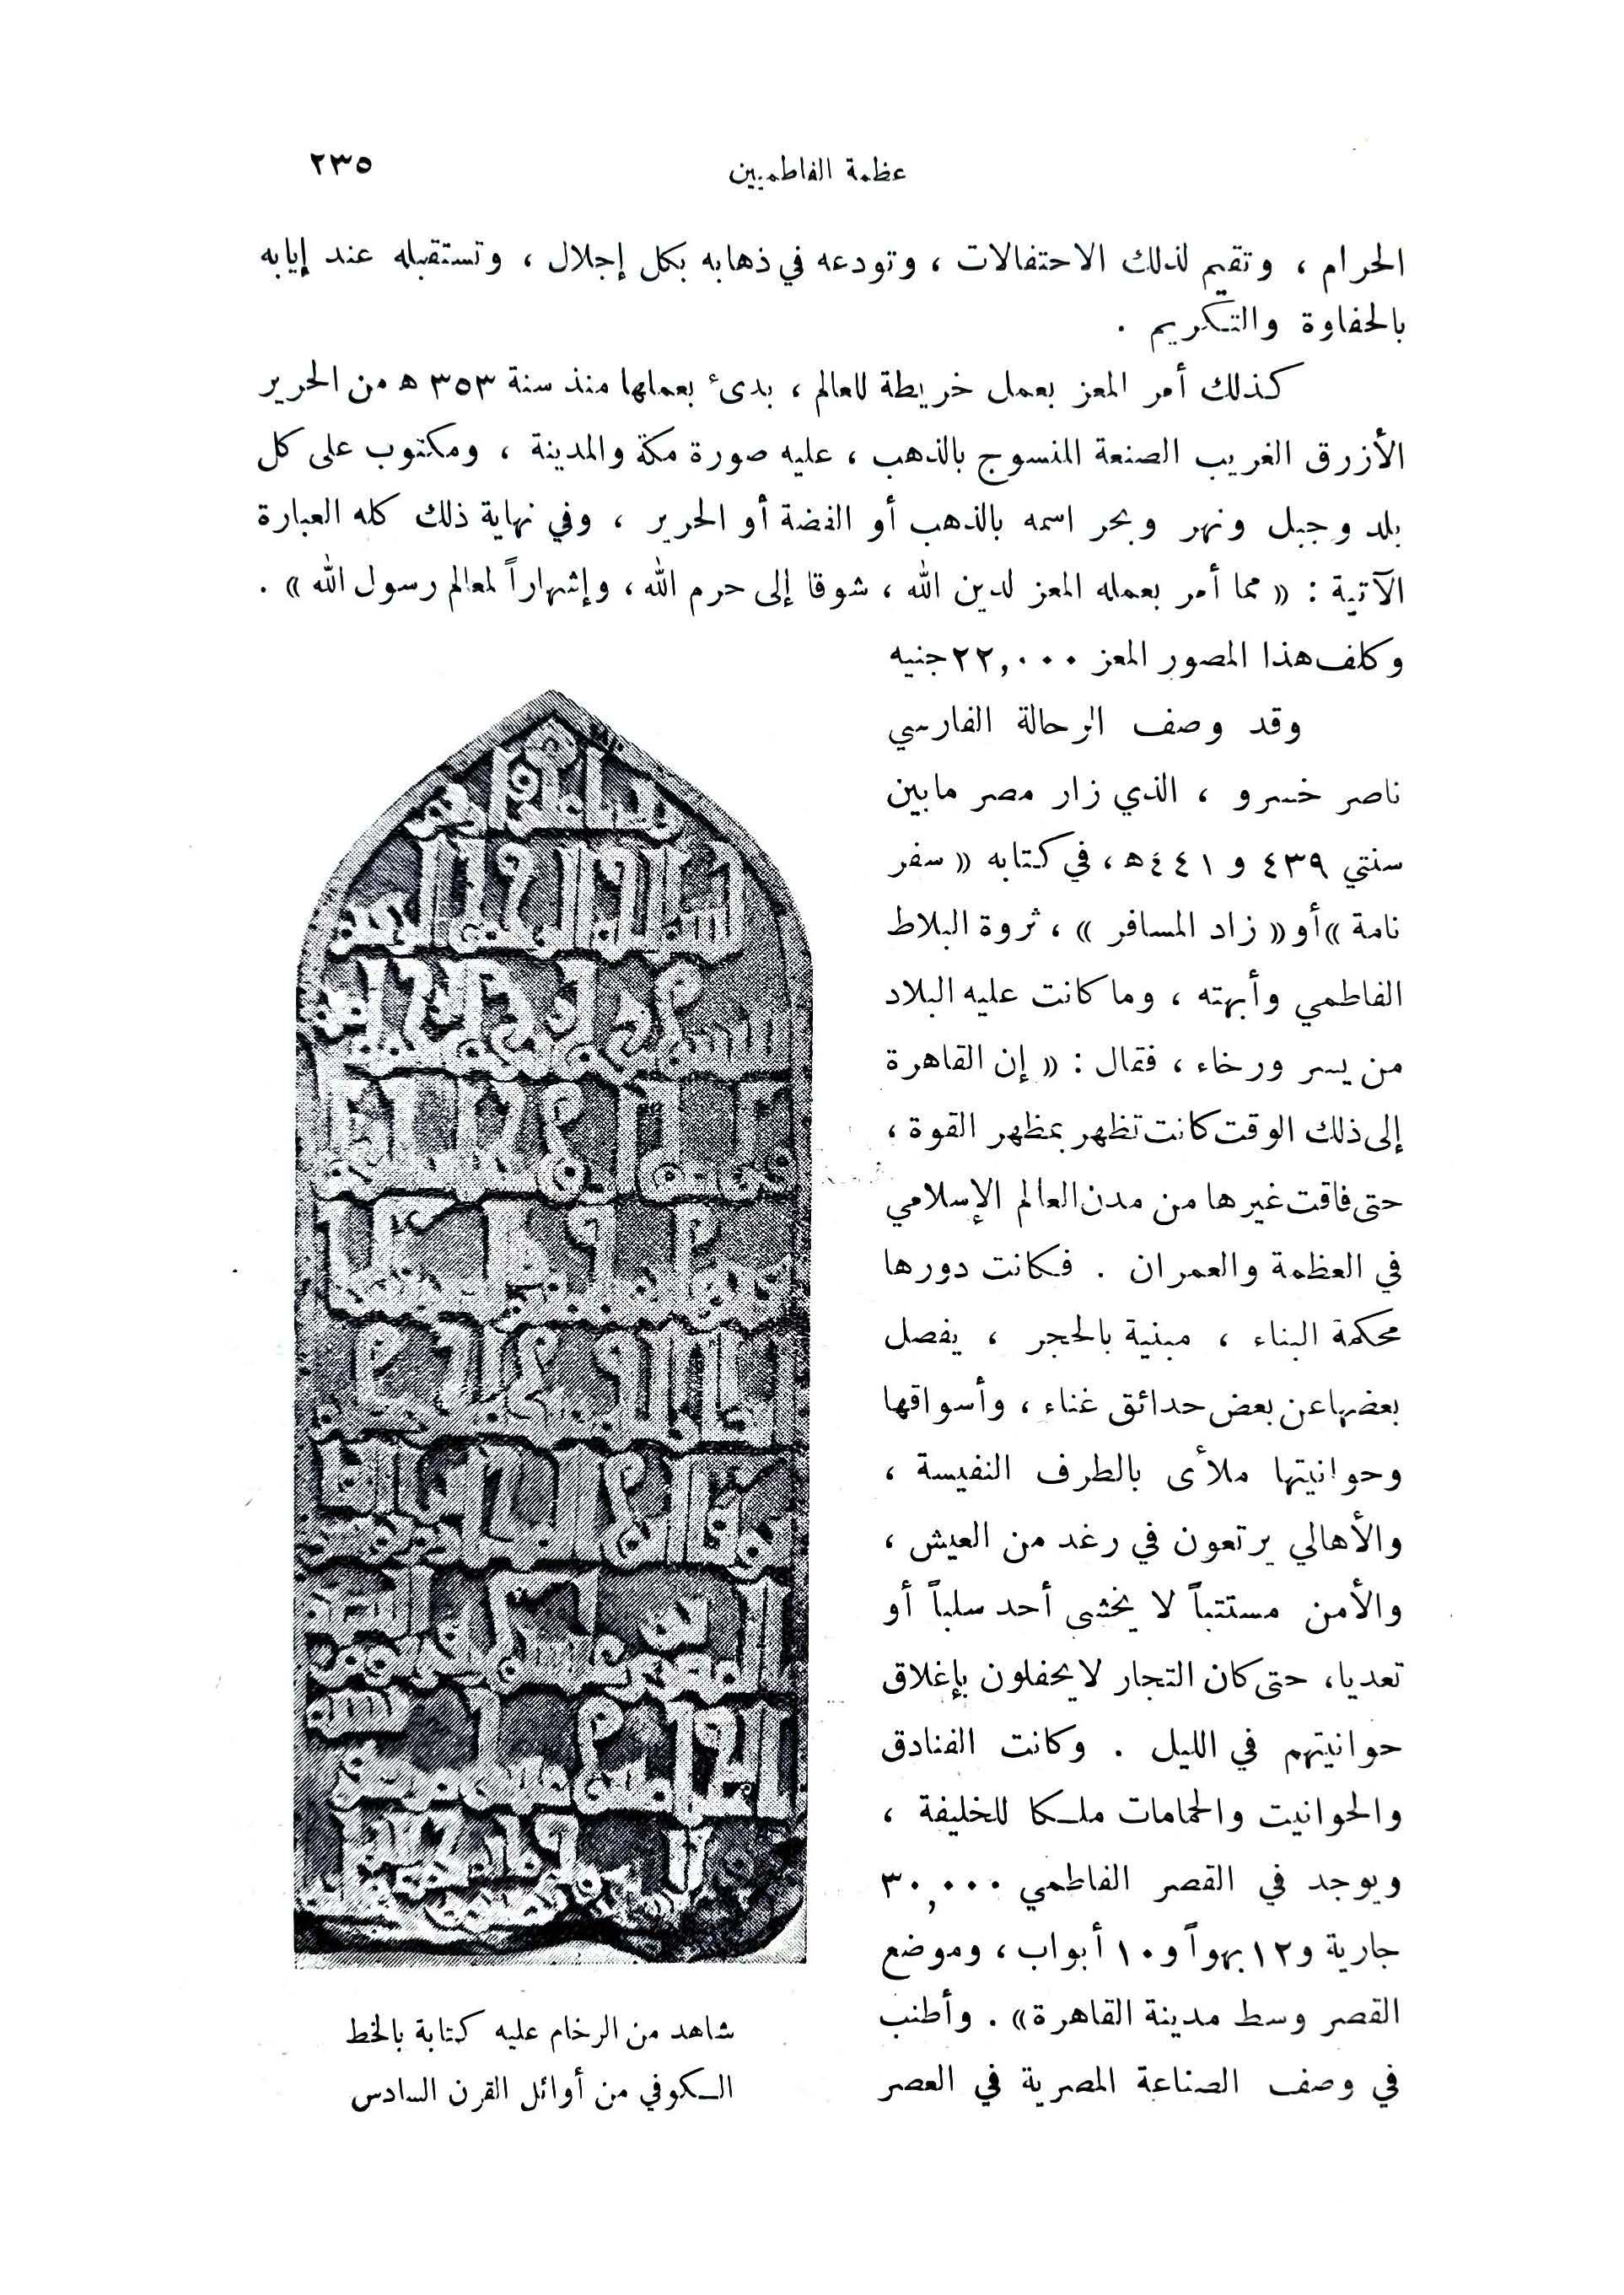 عظمة الفاطميين
٢٣٥
الحرام ، وتقيم لذلك الاحتفالات ، وتودعه في ذهابه بكل إجلال ، وتستقبله عند إيابه
بالحفاوة والتكريم .
كذلك أمر المعز بعمل خريطة للعالم ، بدئ بعملها منذ سنة ٣٥٣ ﻫ من الحرير
الأزرق الغريب الصنعة المنسوج بالذهب ، عليه صورة مكة والمدينة ، ومكتوب على كل
بلد وجبل ونهر وبحر اسمه بالذهب أو الفضة أو الحرير ، وفي نهاية ذلك كله العبارة
الآتية : « مما أمر بعمله المعز لدين الله ، شوقا إلى حرم الله ، وإشهاراً لمعالم رسول الله » .
وكلف هذا المصور المعز ٢٢,٠٠٠ جنيه
وقد وصف الرحالة الفارسي
ناصر خسرو ، الذي زار مصر مابين
سنتي ٤٣٩ و ٤٤١ﻫ ، في كتابه « سفر
نامة » أو « زاد المسافر » ، ثروة البلاط
الفاطمي وأبهته ، وما كانت عليه البلاد
من يسر ورخاء ، فقال : « إن القاهرة
إلى ذلك الوقت كانت تظهر بمظهر القوة ،
حتى فاقت غيرها من مدن العالم الإسلامي
في العظمة والعمران . فكانت دورها
محكمة البناء ، مبنية بالحجر ، يفصل
بعضها عن بعض حدائق غناء ، وأسواقها
وحوانيتها ملأى بالطرف النفيسة ،
والأهالي يرتعون في رغد من العيش ،
والأمن مستتباً لا يخشى أحد سلباً أو
تعديا ، حتى كان التجار لا يحفلون بإغلاق
حوانيتهم في الليل . وكانت الفنادق
والحوانيت والحمامات ملكا للخليفة ،
ويوجد في القصر الفاطمي ٣٠,٠٠٠
جارية و١٢ بهواً و١٠ أبواب ، وموضع
القصر وسط مدينة القاهرة » . وأطنب
في وصف الصناعة المصرية في العصر
شاهد من الرخام عليه كتابة بالخط
الكوفي من أوائل القرن السادس